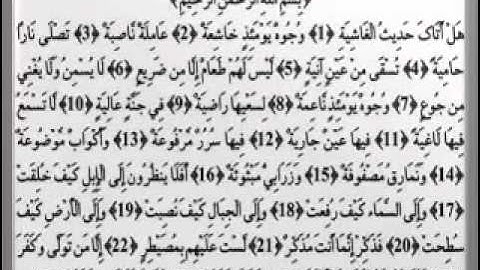 ﴿بِسْمِ اللهِ الرَّحْمنِ الرَّحِيمِ﴾
هَلْ أَتَاكَ حَدِيثُ الْغَاشِيَةِ ﴿1﴾ وُجُوهٌ يَوْمَئِذٍ خَاشِعَةٌ ﴿2﴾ عَامِلَةٌ نَاصِبَةٌ ﴿3﴾ تَصْلَى نَارًا
حَامِيَةً ﴿4﴾ تُسْقَى مِنْ عَيْنٍ آنِيَةٍ ﴿5﴾ لَيْسَ لَهُمْ طَعَامٌ إِلَّا مِن ضَرِيعٍ ﴿6﴾ لَا يُسْمِنُ وَلَا يُغْنِي
مِن جُوعٍ ﴿7﴾ وُجُوهٌ يَوْمَئِذٍ نَّاعِمَةٌ ﴿8﴾ لِسَعْيِهَا رَاضِيَةٌ ﴿9﴾ فِي جَنَّةٍ عَالِيَةٍ ﴿10﴾ لَا تَسْمَعُ
فِيهَا لَاغِيَةً ﴿11﴾ فِيهَا عَيْنٌ جَارِيَةٌ ﴿12﴾ فِيهَا سُرُرٌ مَّرْفُوعَةٌ ﴿13﴾ وَأَكْوَابٌ مَّوْضُوعَةٌ
﴿14﴾ وَنَمَارِقُ مَصْفُوفَةٌ ﴿15﴾ وَزَرَابِيُّ مَبْثُوثَةٌ ﴿16﴾ أَفَلَا يَنظُرُونَ إِلَى الْإِبِلِ كَيْفَ خُلِقَتْ
﴿17﴾ وَإِلَى السَّمَاء كَيْفَ رُفِعَتْ ﴿18﴾ وَإِلَى الْجِبَالِ كَيْفَ نُصِبَتْ ﴿19﴾ وَإِلَى الْأَرْضِ كَيْفَ
سُطِحَتْ ﴿20﴾ فَذَكِّرْ إِنَّمَا أَنتَ مُذَكِّرٌ ﴿21﴾ لَّسْتَ عَلَيْهِم بِمُصَيْطِرٍ ﴿22﴾ إِلَّا مَن تَوَلَّى وَكَفَرَ